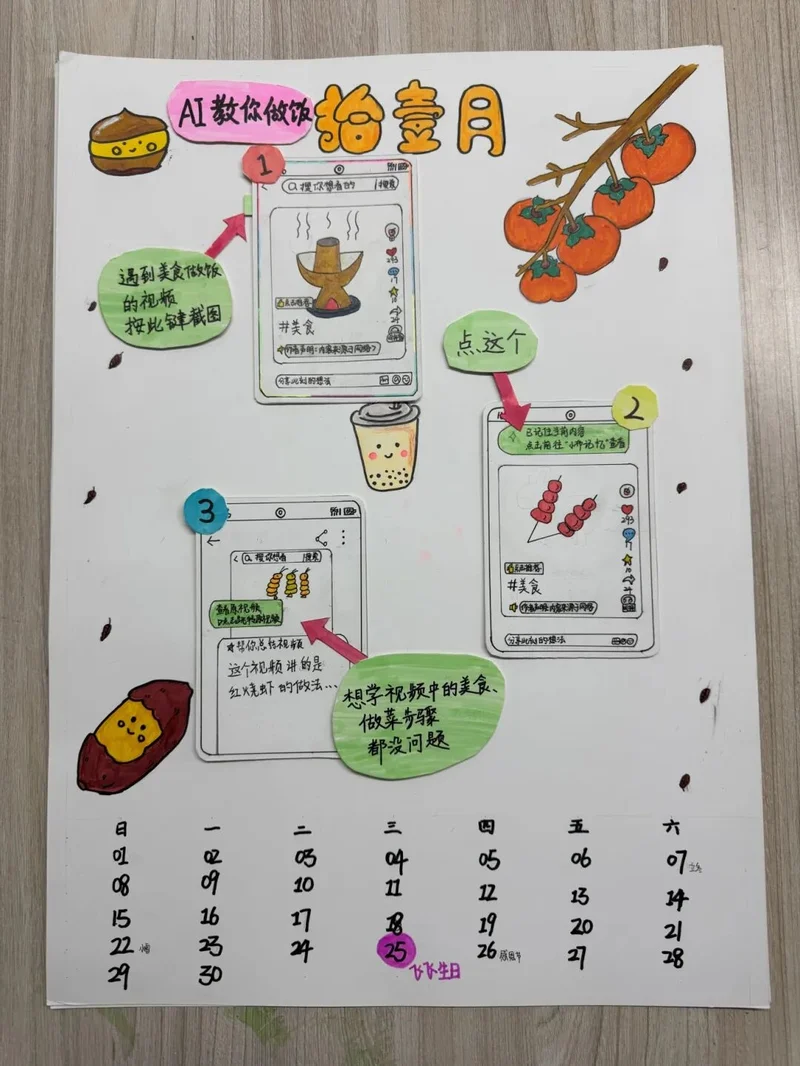 AI教你做饭
拾壹月
1
搜你想看的 | 搜索
遇到美食做饭
的视频
按此键截图
293
点击推荐
#美食
作者声明:内容来源于网络>
分享此刻的想法
点这个
2
已记住当前内容
点击前往"小布记忆"查看
293
点击推荐
#美食
作者声明:内容来源于网络
分享此刻的想法
3
搜你想看 | 搜索
查看原视频
帮你总结视频
这个视频讲的是
红烧虾的做法...
想学视频中的美食、
做菜步骤
都没问题
日 一 二 三 四 五 六
01 02 03 04 05 06 07 立冬
08 09 10 11 12 13 14
15 16 17 18 19 20 21
22 小雪 23 24 25 26 感恩节 27 28
飞飞生日
29 30